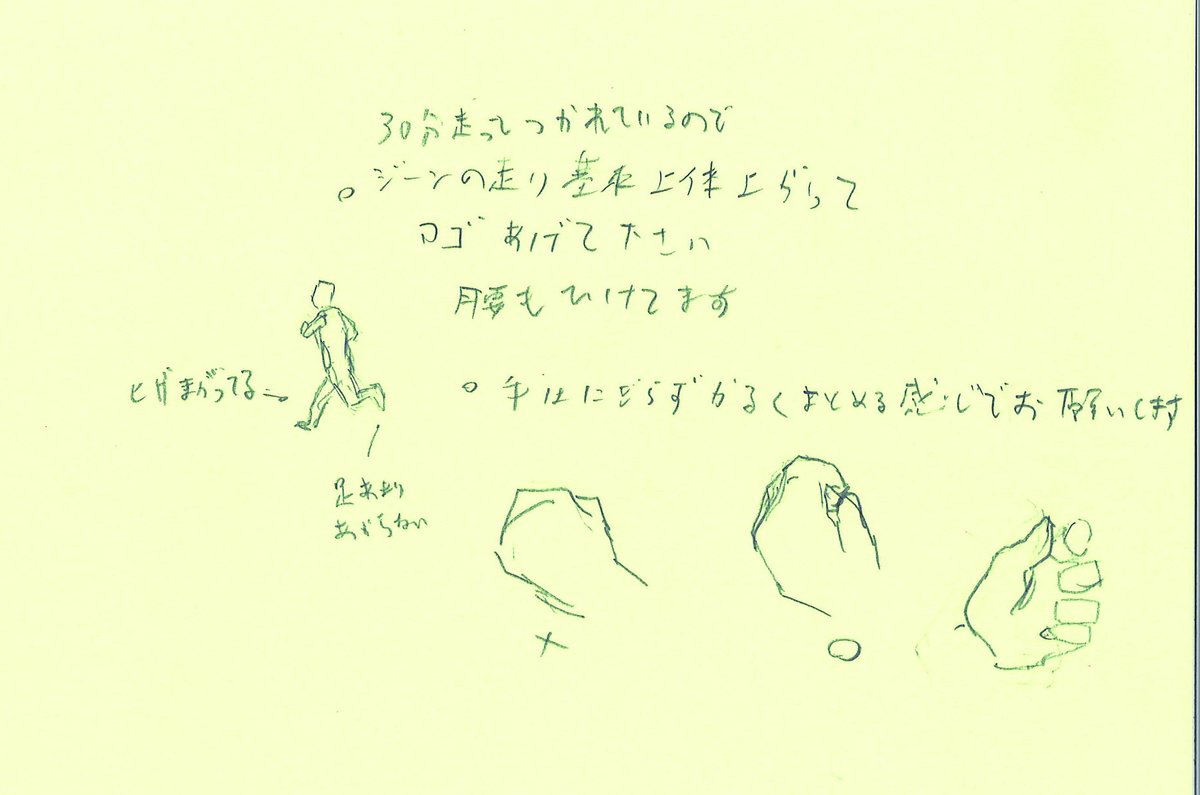 30分走ってつかれているので
。ジーンの走り基本上体上がって
アゴあげて下さい
腰もひけてます
ヒザまがってる
。手はにぎらずかるくまとめる感じでお願いします
足あまり
あがらない
×
○